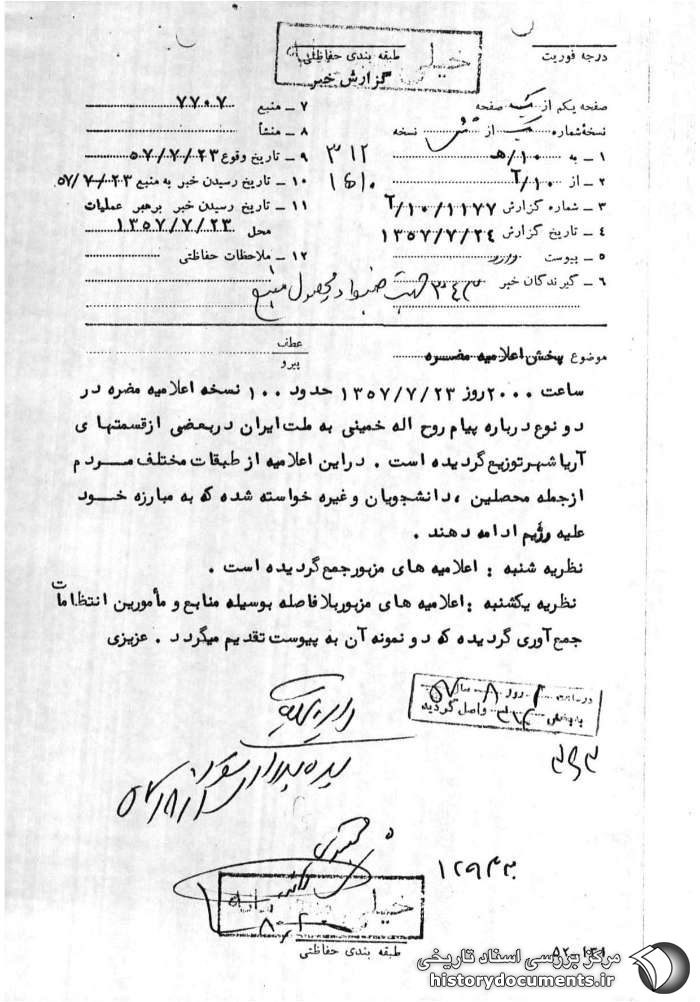 درجه فوریت
طبقه بندی حفاظتی
خیلی
گزارش خبر
صفحه یکم از یک صفحه
نسخهٔ شماره یک از شش نسخه
۱ ـ به ۱۰/هـ ۳۱۲
۲ ـ از ۱۰/T
۳ ـ شماره گزارش ۱۱۷۷/۱۰/T
۴ ـ تاریخ گزارش ۱۳۵۷/۷/۲۴
۵ ـ پیوست دارد
۶ ـ گیرندگان خبر
۷ ـ منبع ۷۷۰۷
۸ ـ منشأ
۹ ـ تاریخ وقوع ۵۷/۷/۲۳
۱۰ ـ تاریخ رسیدن خبر به منبع ۵۷/۷/۲۳
۱۱ ـ تاریخ رسیدن خبر برهبر عملیات
محل ۱۳۵۷/۷/۲۳
۱۲ ـ ملاحظات حفاظتی
موضوع پخش اعلامیه مضره
عطف
پیرو
ساعت ۲۰۰۰ روز ۱۳۵۷/۷/۲۳ حدود ۱۰۰ نسخه اعلامیه مضره در
دو نوع درباره پیام روح اله خمینی به ملت ایران دربعضی ازقسمتهای
آریا شهر توزیع گردیده است . دراین اعلامیه از طبقات مختلف مردم
ازجمله محصلین ، دانشجویان و غیره خواسته شده که به مبارزه خود
علیه رژیم ادامه دهند .
نظریه شنبه : اعلامیه های مزبور جمع گردیده است .
نظریه یکشنبه : اعلامیه های مزبور بلافاصله بوسیله منابع و مأمورین انتظامات
جمع آوری گردیده که دو نمونه آن به پیوست تقدیم میگردد . عزیزی
روز ۸ سال ۵۷
واصل گردید
۱۲۹۴۳
خیلی
طبقه بندی حفاظتی
مرکز بررسی اسناد تاریخی
historydocuments.ir